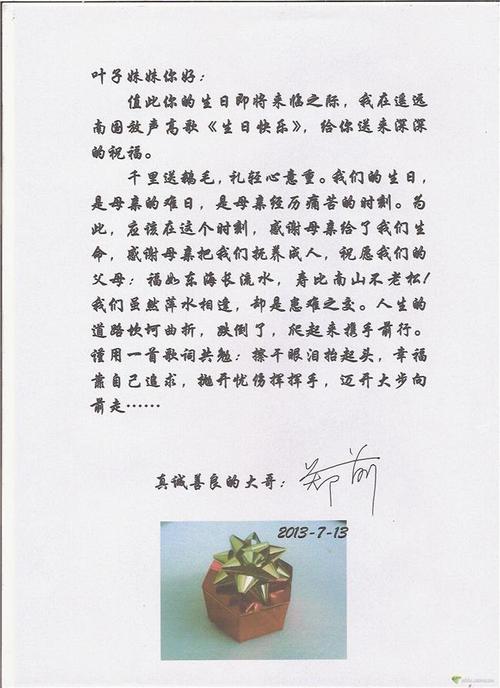 叶子妹妹你好：
值此你的生日即将来临之际，我在遥远
南国放声高歌《生日快乐》，给你送来深深
的祝福。
千里送鹅毛，礼轻心意重。我们的生日，
是母亲的难日，是母亲经历痛苦的时刻。为
此，应该在这个时刻，感谢母亲给了我们生
命，感谢母亲把我们抚养成人，祝愿我们的
父母：福如东海长流水，寿比南山不老松！
我们虽然萍水相逢，却是患难之交。人生的
道路坎坷曲折，跌倒了，爬起来携手前行。
谨用一首歌词共勉：擦干眼泪抬起头，幸福
靠自己追求，抛开忧伤挥挥手，迈开大步向
前走……
真诚善良的大哥：郑前
2013-7-13